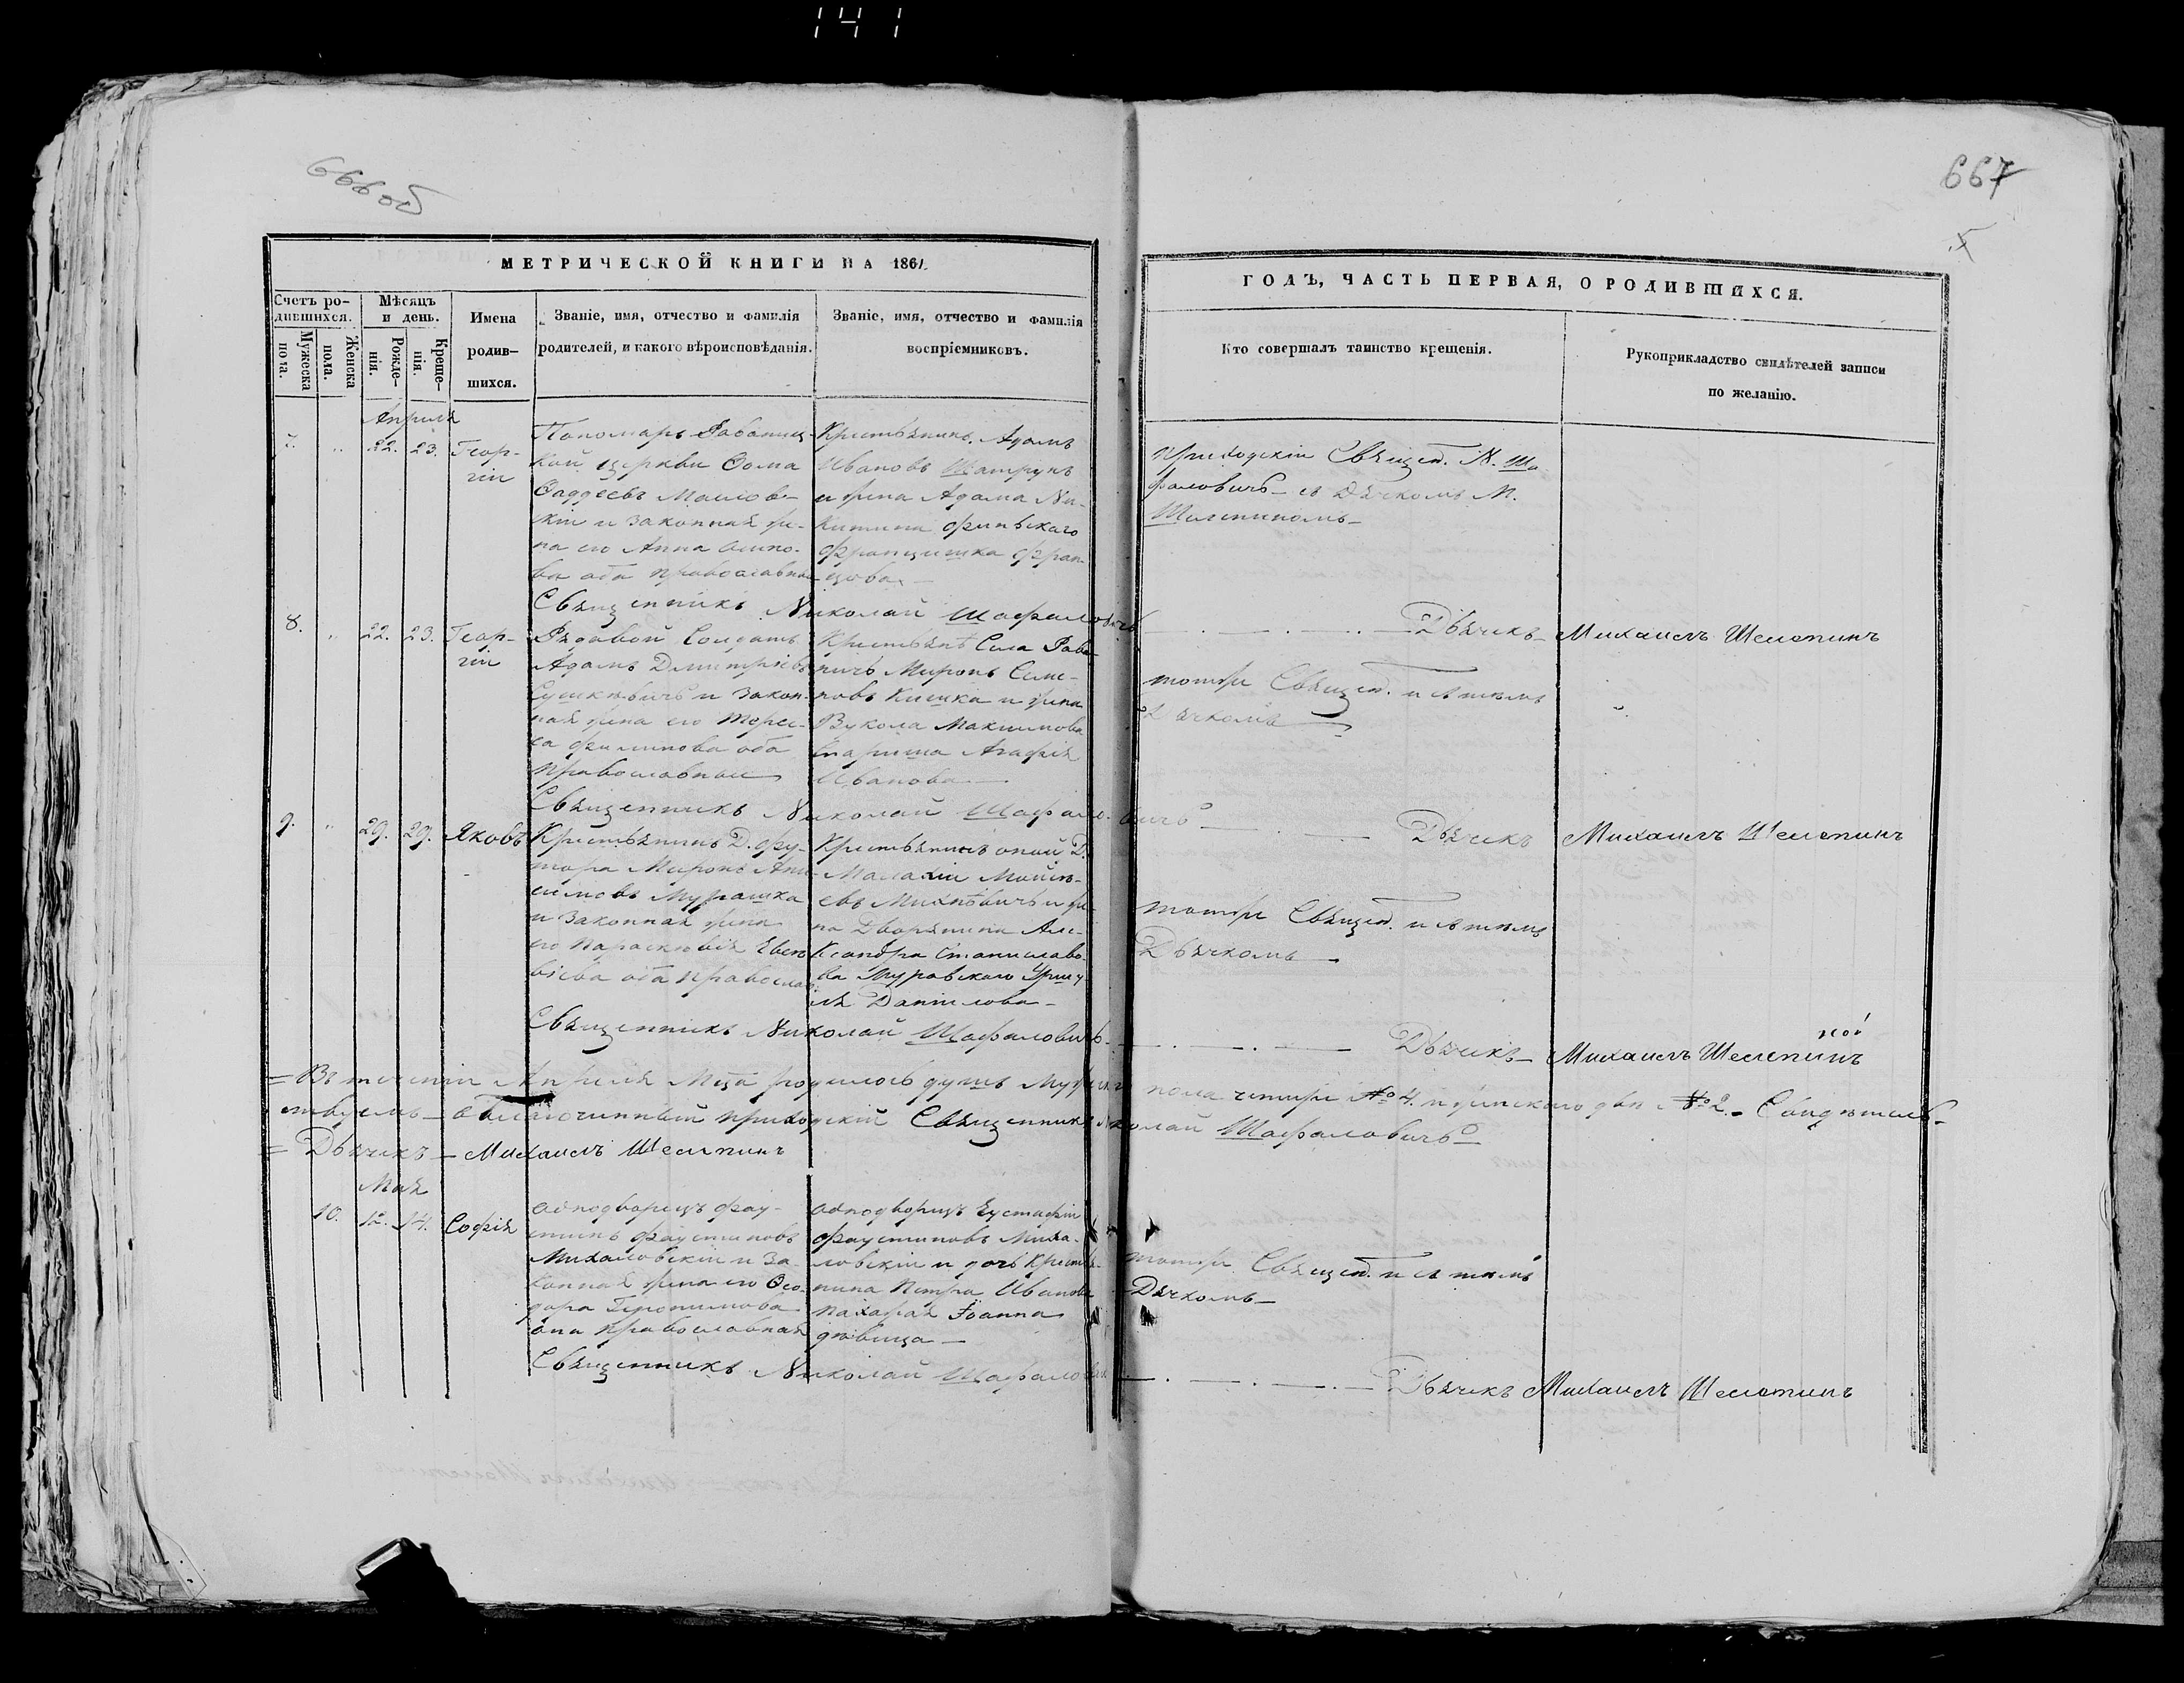 141
666об
667
МЕТРИЧЕСКОЙ КНИГИ НА 1861.
Счетъ ро-
дившихся.
Мужеска
пола.
Женска
пола.
Мѣсяцъ
и день.
Рожде-
нія.
Креще-
нія.
Имена
родив-
шихся.
Званіе, имя, отчество и фамилія
родителей, и какого вѣроисповѣданія.
Званіе, имя, отчество и фамилія
воспріемниковъ.
ГОДЪ, ЧАСТЬ ПЕРВАЯ, О РОДИВШИХСЯ.
Кто совершалъ таинство крещенія.
Рукоприкладство свидѣтелей записи
по желанію.
Апрѣля
7. 22. 23. Геор-
гій
Пономарь
кой церкви Ѳома
Ѳаддеевъ
кій и законная же-
на его Анна Осипо-
ва оба православные
Крестьянинъ Адамъ
Ивановъ
и жена Адама Ни-
китина
Францишка Фран-
цова
Приходскій Священ. Н. Ша-
фаловичъ съ Дьячкомъ М.
Шелепиномъ
Священникъ Николай Шафаловичъ Дьячекъ Михаилъ Шелепинъ
8. 22. 23. Геор-
гій
Рядовой Солдатъ
Адамъ Дмитріевъ
и закон-
ная жена его
са Филипова оба
православные
Села
Миронъ Семе-
новъ и жена
Вукола Максимова
Агафія
Иванова
тотже Священ. и съ тѣмъ
Дьячкомъ
Священникъ Николай Шафаловичъ Дьячекъ Михаилъ Шелепинъ
9. 29. 29. Яковъ
Крестьянинъ Д. Фу-
тора Миронъ Ани-
симовъ Мурашка
и законная жена
его Параскевія
оба Правосла
Крестьянинъ оной Д.
Малахій Мойсе-
евъ Михневичъ и же-
на Дворянина Але-
ксандра Станиславо-
ва
Даніилова
тотже Священ. и съ тѣмъ
Дьячкомъ
Священникъ Николай Шафаловичъ Дьячекъ Михаилъ Шелепинъ
Въ теченіи Апрѣля Мца родилось душъ Мужеска пола четыре №4. и женскаго двѣ №2. Свидѣтель-
ствуемъ Благочинный приходскій Священникъ Николай Шафаловичъ
Дьячекъ Михаилъ Шелепинъ
Мая
10. 12. 14. Софія
Однодворецъ Фау-
стинъ Фаустиновъ
Михаловскій и за-
конная жена его Ѳео-
дора Іеронимова
она православная
Однодворецъ Еустафій
Фаустиновъ Миха-
ловскій и дочь Крестья-
нина Петра Иванова
Іоанна
дѣвица
тотже Священ. и съ тѣмъ
Дьячкомъ
Священникъ Николай Шафаловичъ Дьячекъ Михаилъ Шелепинъ